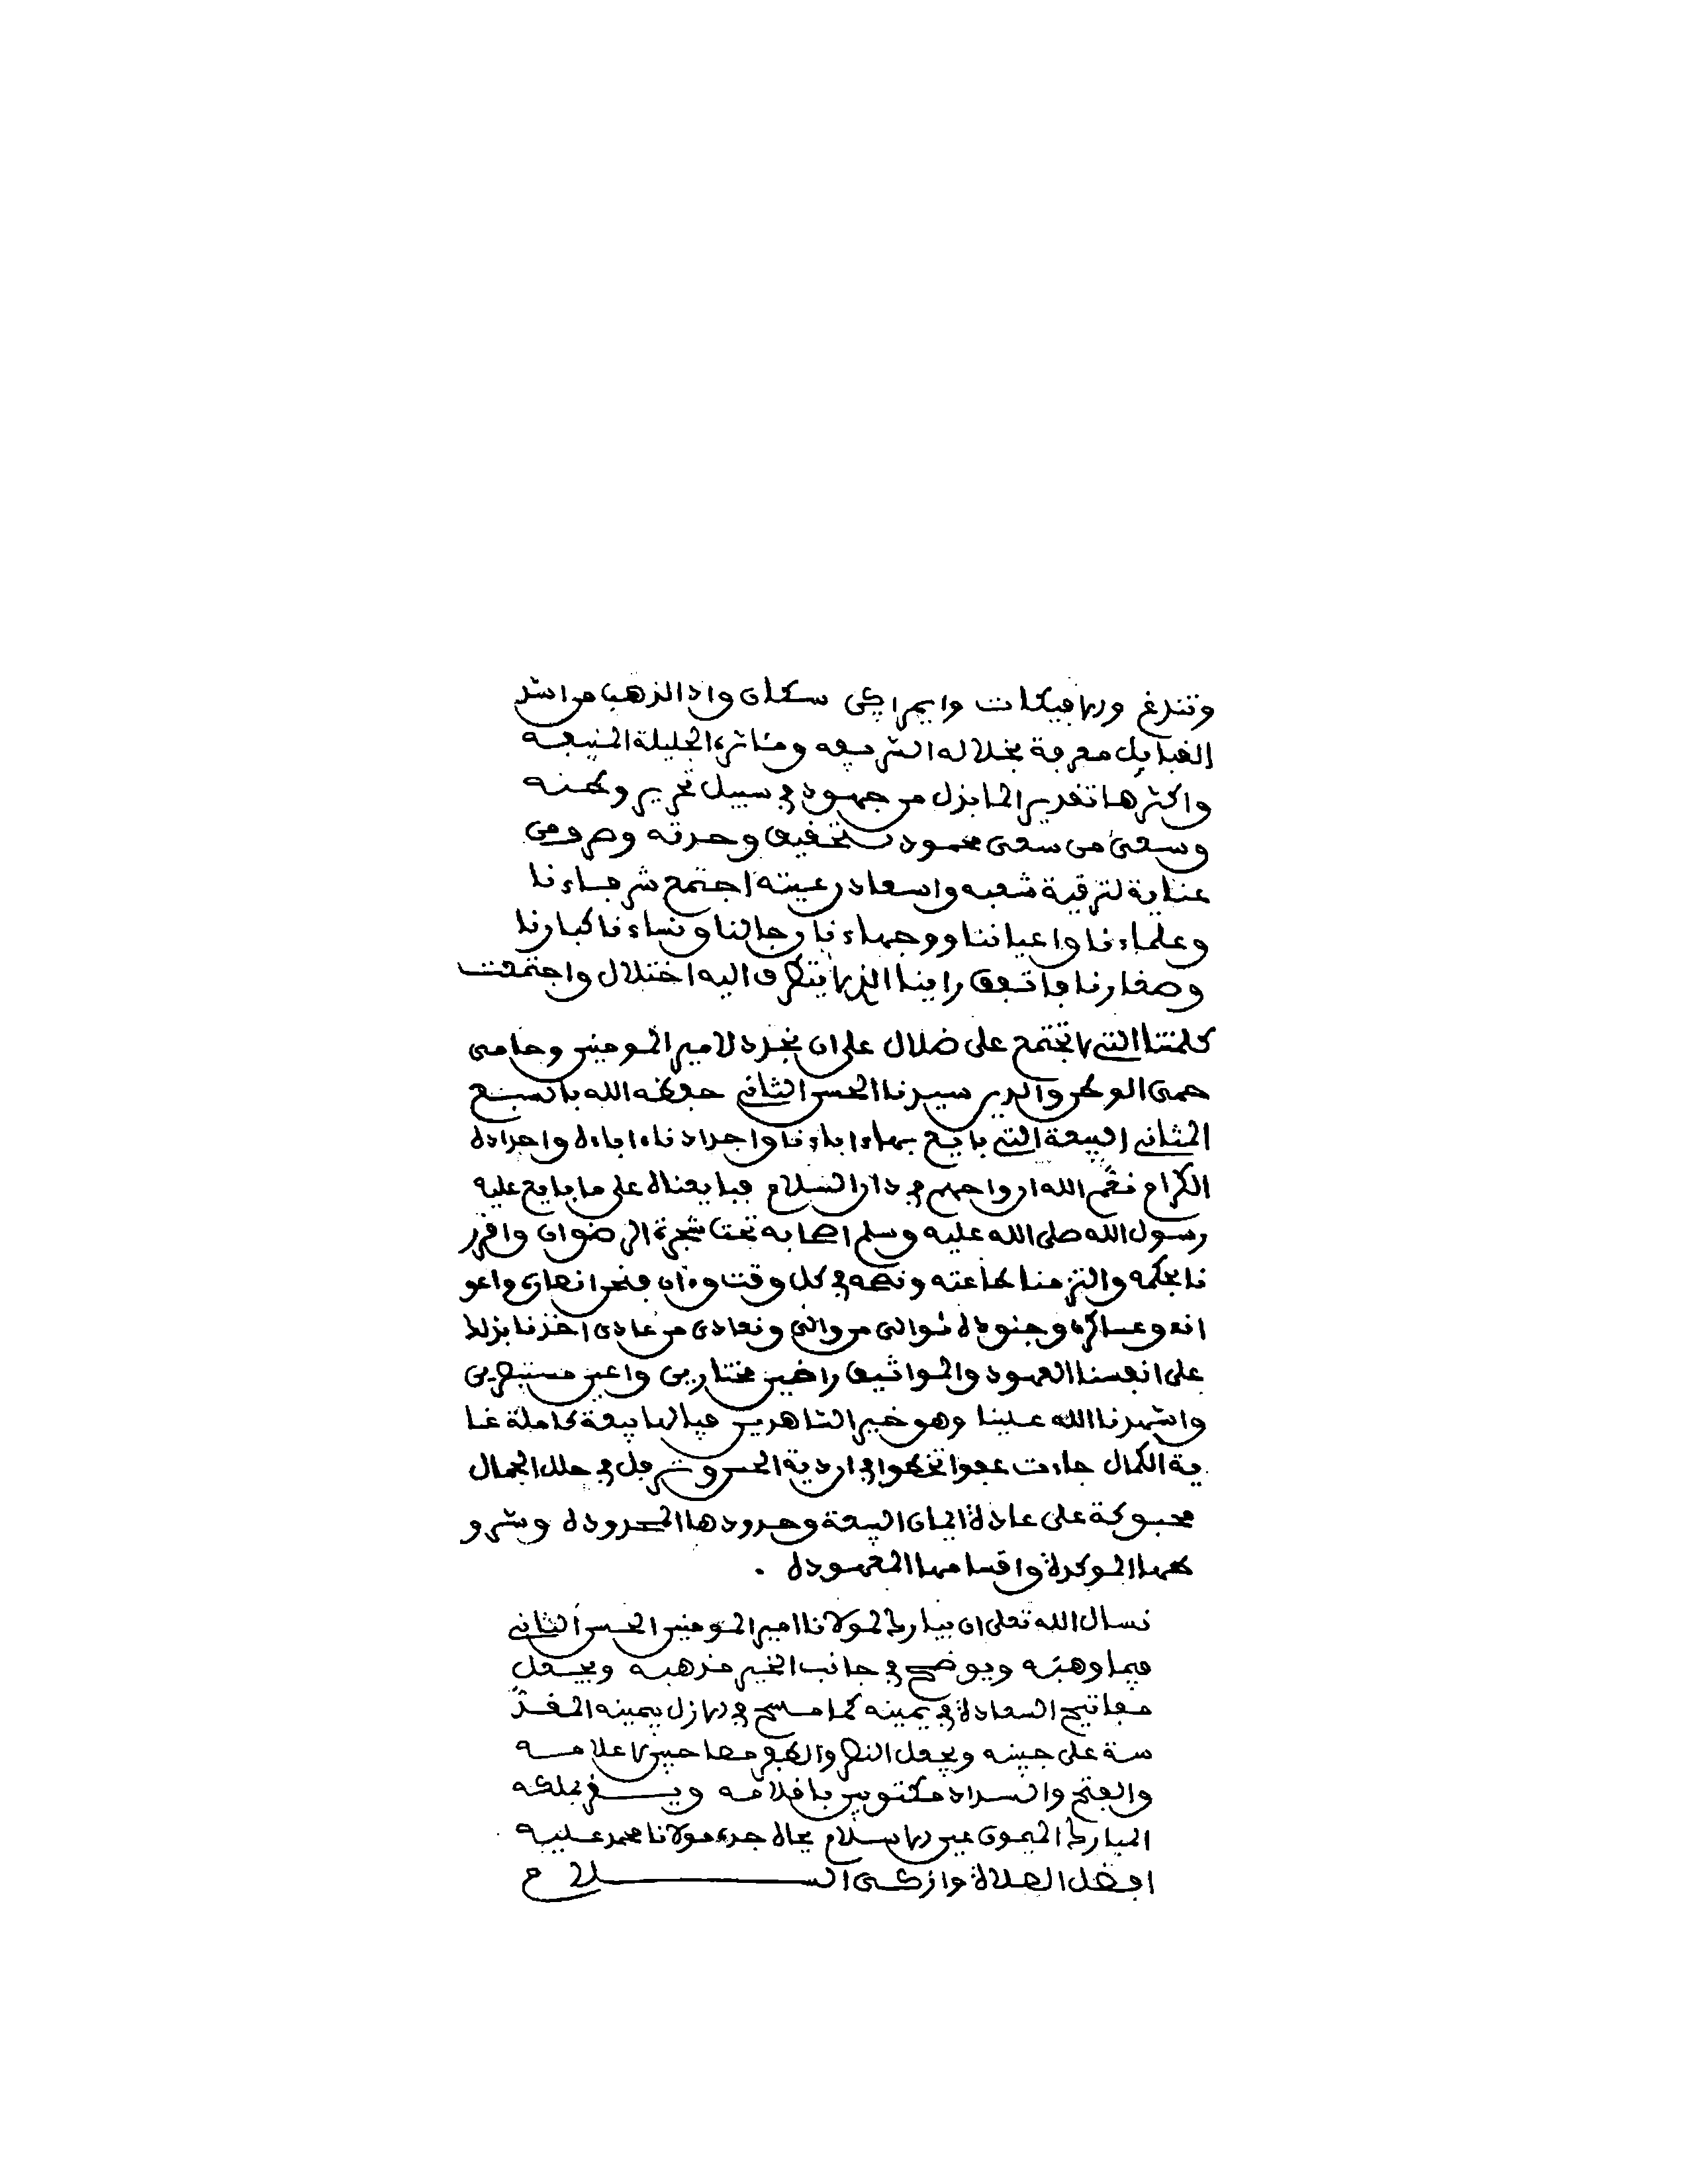 وتندغ ولافيكات وايمراكي سكان واد الذهب من اشد
القبايل معرفة بخلاله الشريفه ومئاثره الجليلة المنيعه
واكثرها تقديرا لما بذل من جهود في سبيل تحرير وطنه
وسعى من سعى محمود لتحقيق وحدته وصرف من
عناية لترقية شعبه واسعاد رعيته اجتمع شرفاءنا
وعلماءنا واعياننا ووجهاءنا رجالنا ونساءنا كبارنا
وصغارنا فاتفق راينا الذي لا يتطرق اليه اختلال واجتمعت
كلمتنا التي لا تجتمع على ضلال على ان نجدد لامير المومنين وحامي
حمى الوطن والدين سيدنا الحسن الثاني حفظه الله بالسبع
المثاني البيعة التي بايع بها ءاباءنا واجدادنا ءاباءه واجداده
الكرام نعم الله ارواحهم في دار السلام فبايعناه على ما بايع عليه
رسول الله صلى الله عليه وسلم اصحابه تحت شجرة الرضوان واقرر
نا بحكمه والتزمنا طاعته ونصحه في كل وقت وءان فنحن انصاره واعو
انه وعساكره وجنوده نوالي من والى ونعادي من عادى اخذنا بذلك
على انفسنا العهود والمواثيق راضين مختارين واعين مستبصرين
واشهدنا الله علينا وهو خير الشاهدين فيا لها بيعة كاملة غا
ية الكمال جاءت عفوا تخطوا في اردية الحسن وترفل في حلل الجمال
محبوكة على عادة اليمان البيعة وحدودها المحدودة وشرو
طها الموكدة واقسامها المعهودة .
نسال الله تعلى ان يبارك لمولانا امير المومنين الحسن الثاني
فيما وهبه ويوضح في جانب الخير مذهبه ويجعل
مفاتيح السعادة في يمينه كما مسح في الازل بيمينه المقد
سة على جبينه ويجعل النصر والظفر مصاحبين لاعلامه
والفتح والسداد مكتوبين باقلامه ويقر بملكه
المبارك الميمون عين الاسلام بجاه جده مولانا محمد عليه
افضل الصلاة وازكى السلام